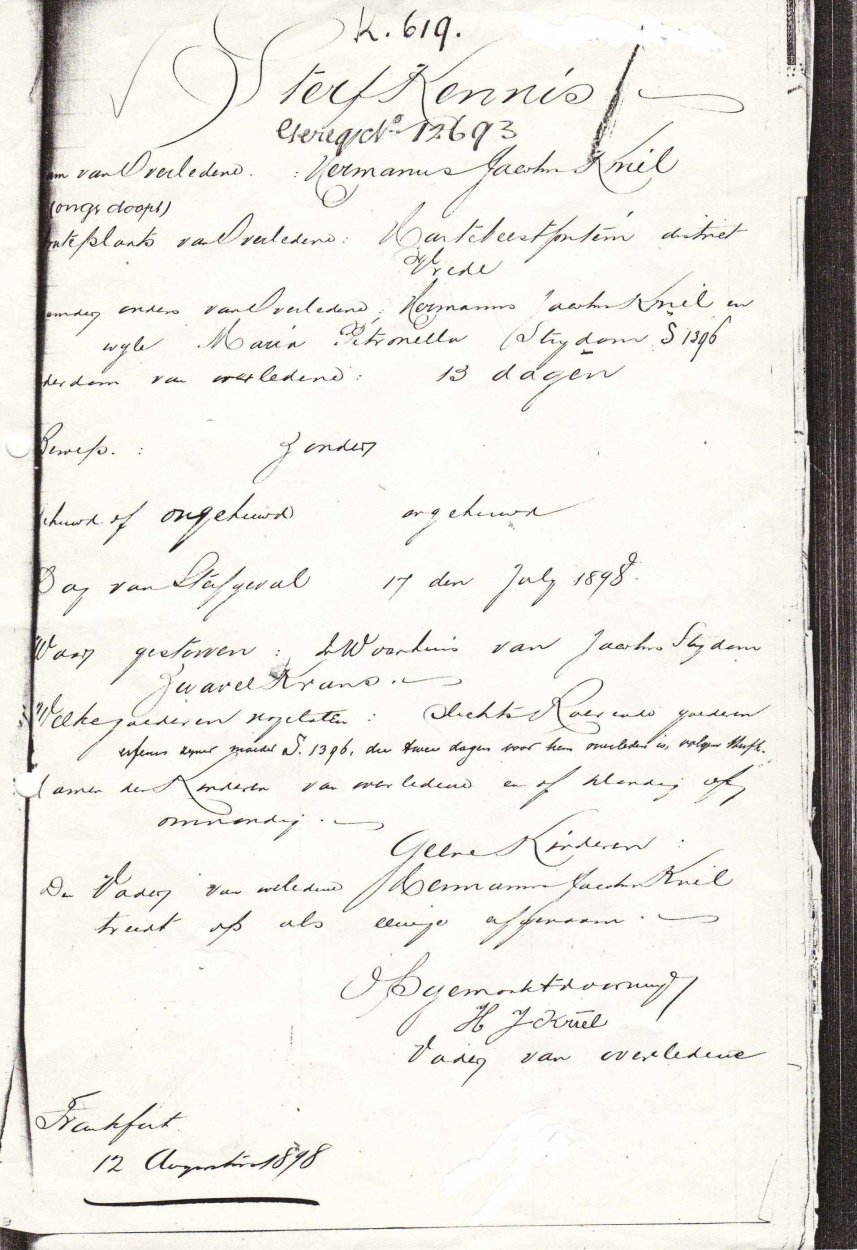 K. 619.
Sterf Kennis
Geregd No 12693
am van Overledene. : Hermanus Jacobus Kriel
(ongedoopt)
orteplaats van Overledene: Hartebeestfontein district
Vrede
amen ouders van Overledene: Hermanus Jacobus Kriel en
wyle Maria Petronella Strydom S 1396
derdom van overledene : 13 dagen
Bewijs. : Zonder
ehuwd of ongehuwd ongehuwd
Dag van Sterfgeval 17 den July 1898.
Waar gestorven : In Woonhuis van Jacobus Strydom
Zwavel Krans.
Welke goederen nagelaten : Slechts Roerende goederen
erfenis zyner moeder S. 1396, die twee dagen voor hem overleden is, volgens
Namen der Kinderen van overledene en of Mondig of
onmondig.
Geene Kinderen :
De Vader van overledene Hermanus Jacobus Kriel
treedt op als eenige erfgenaam.
Opgemaakt door my
H J Kriel
Vader van overledene
Frankfort
12 Augustus 1898